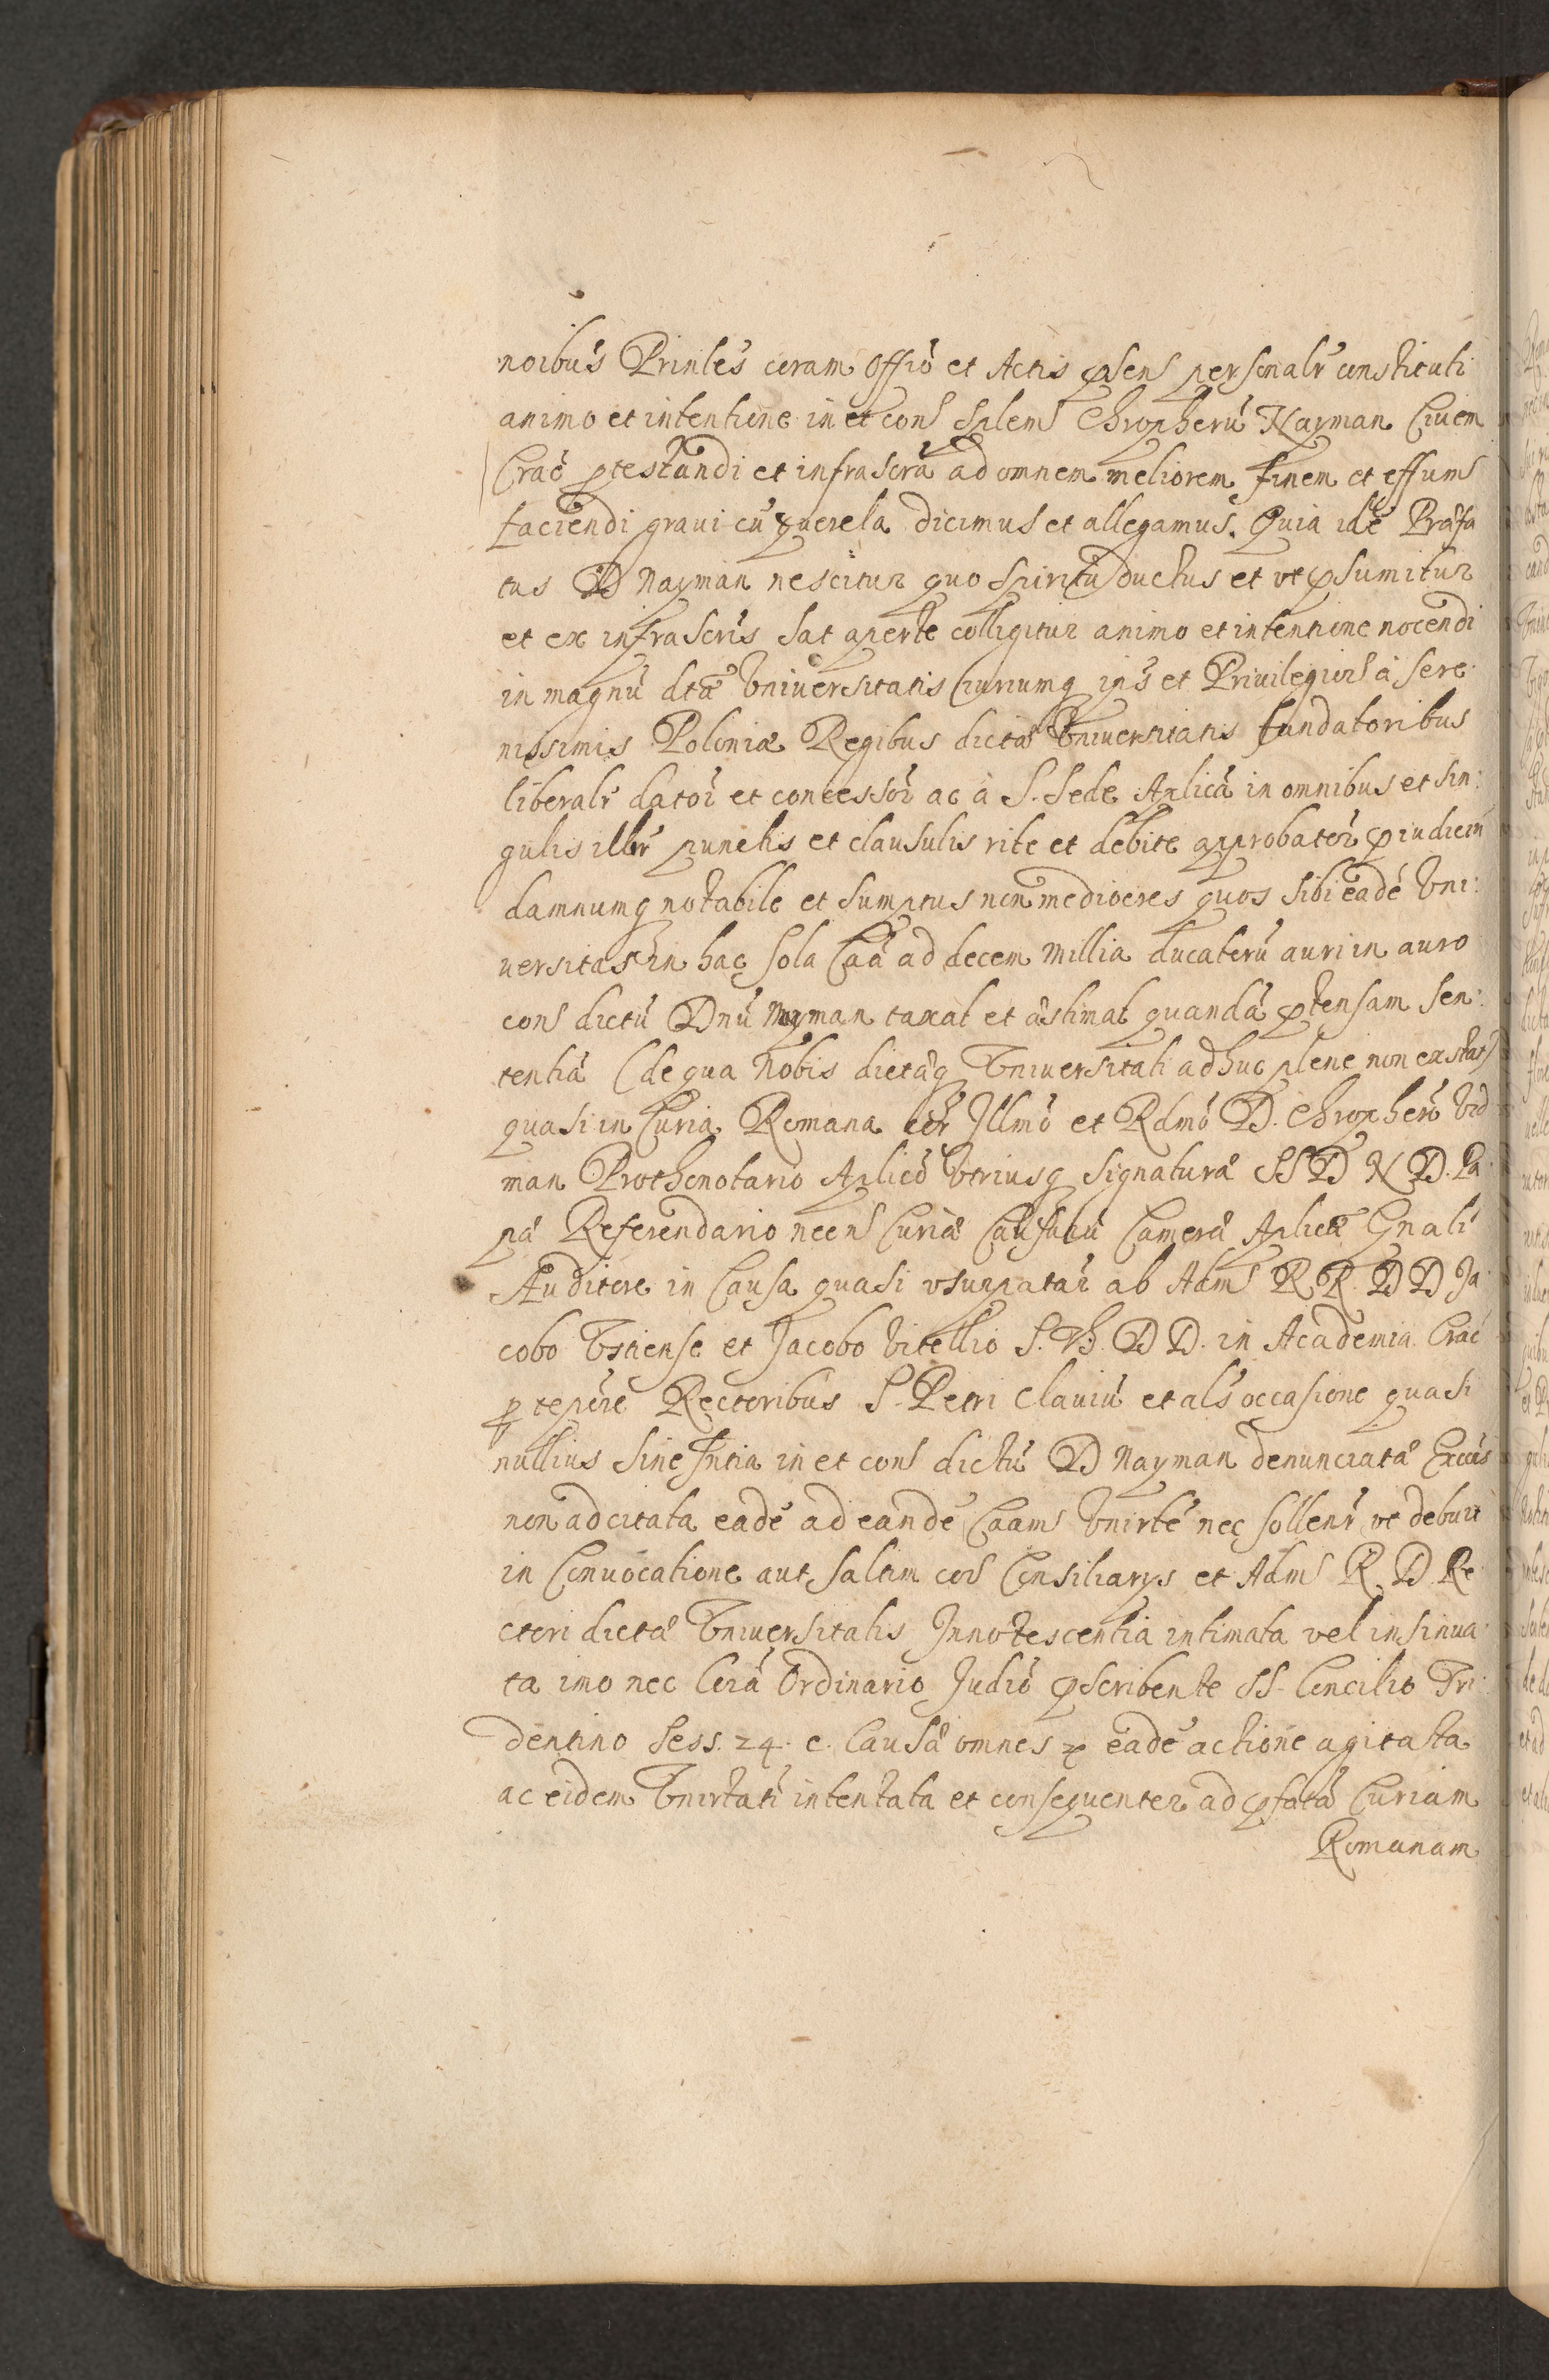 noibus Prinles coram Offio et Actis psens personalr constituti
animo et intentione in et cons Splem Chropherū Nayman Ciuem
Crac ptestandi et infrascra ad omnem meliorem finem et effum
faciendi graui cū querela dicimus et allegamus. Quia idē Præfa
tus D Nayman nescitur quo spiritu ductus et vt psumitur
et ex infrascris sat aperte colligitur animo et intentione nocendi
in magnū dtæ Vniuersitatis Iuriumq ips et Priuilegiors à Sere:
nissimis Poloniæ Regibus dictæ Vniuersitatis fundatoribus
liberalr dator et concessor ac à S. Sede Aplica in omnibus et sin:
gulis illr punctis et clausulis rite et debite approbator piudiciū
damnumq notabile et sumptus non mediocres quos sibi eadē Vni:
uersitas in hac sola Caa ad decem millia ducatorū auri in auro
cons dictū Dnū Nayman taxat et æstimat quandā ptensam sen:
tentiā (de qua Nobis dictæq Vniuersitati adhuc plene non exstat)
quasi in Curia Romana cor Illmo et Rdmo D. Chropherō Vid
man Prothonotario Aplico Vtriusq Signaturæ SS D N D. Pa:
pæ Referendario necns Curiæ Causarū Cameræ Aplicæ Gnali
Auditore in Causa quasi vsurpatar ab Adm R. R. D D Ja
cobo Vstiense et Jacobo Vitellio S. Th. D D. in Academia Crac
p tepore Rectoribus S. Petri Clauiū et als occasione quasi
nullius sine Intia in et cons dictū D Nayman denunciatæ Exccis
non adcitata eadē ad eandē Caam Vnirte nec sollenr vt debuit
in Conuocatione aut saltim cors Consiliarys et Adm R D Re
ctori dictæ Vniuersitatis Innotescentia intimata vel insinua
ta imo nec Corā Ordinario Judio pscribente SS. Concilio Tri:
dentino Sess. 24. c. Causæ omnes p eadē actione agitata
ac eidem Vnirtati intentata et consequenter ad pfatā Curiam
Romanam